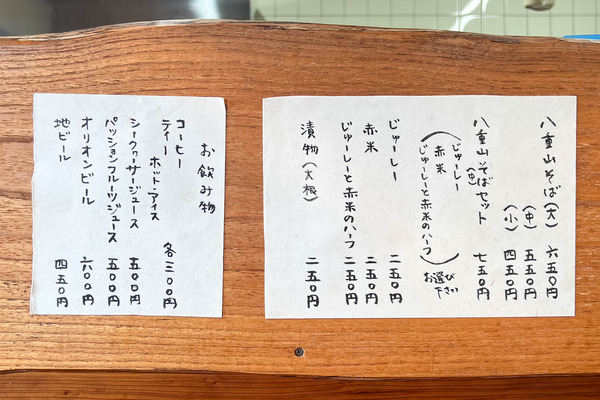 八重山そば(大) 六五〇円
(中) 五五〇円
(小) 四五〇円
八重山そばセット(中) 七五〇円
(じゅーしー
赤米
じゅーしーと赤米のハーフ)
お選び下さい
じゅーしー 二五〇円
赤米 二五〇円
じゅーしーと赤米のハーフ 二五〇円
漬物(大根) 二五〇円
お飲み物
コーヒー
ティー ホット・アイス 各三〇〇円
シークヮーサージュース 五〇〇円
パッションフルーツジュース 五〇〇円
オリオンビール 六〇〇円
地ビール 四五〇円